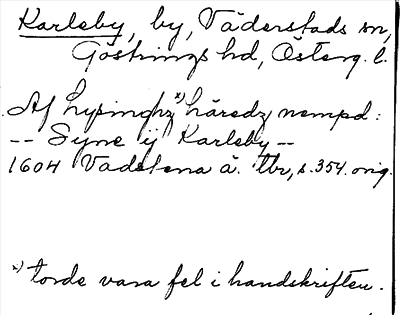 Karleby, by, Väderstads sn,
Göstrings hd, Österg. l.
Af Lysinghz x) häredz nempd:
-- Syne ij Karleby --
1604 Vadstena ä. tbr, s. 354. orig.
x) torde vara fel i handskriften.